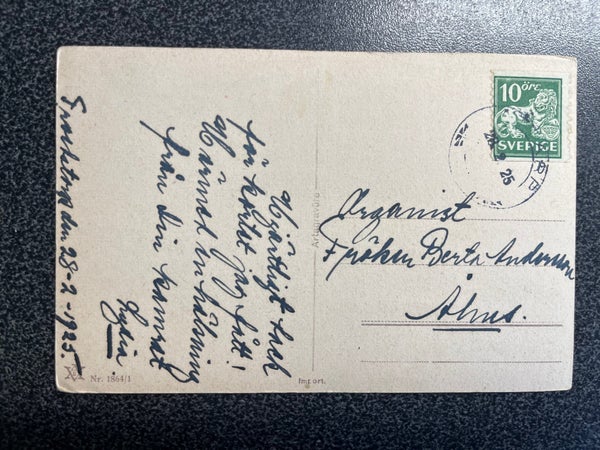 Hjärtligt tack
för kortet jag fått!
Härmed en hälsning
från din kamrat
Lydia.
den 28-2-1925.
Nr. 1864/1
Import.
10 ÖRE
SVERIGE
25
Organist
Fröken Berta Andersson
Alms.